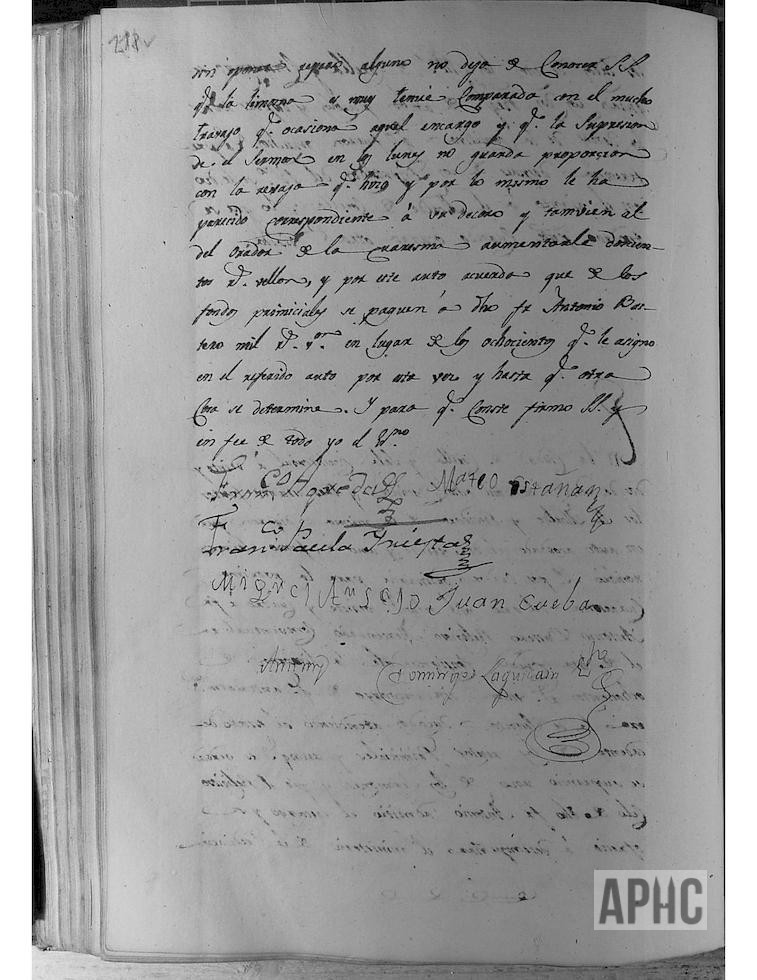 218v
sin poner reparo alguno no deja de Conocer SS.
qe. la limosna es muy tenue comparada con el mucho
travajo qe. ocasiona aquel encargo y qe. la supresion
de el sermon en los lunes no guarda proporcion
con la revaja qe. hizo y por lo mismo le ha
parecido correspondiente á su decoro y tamvien al
del orador de la quaresma aumentarle docien-
tos rs. vellon, y por este auto acuerda que de los
fondos primiciales se paguen á dho fr. Antonio
mil rs. von. en lugar de los ochocientos qe. le asigno
en el referido auto por esta vez y hasta qe. otra
Cosa se determine. Y para qe. Conste firmo SS. y
en fee de todo yo el Ssno
Mateo estañan
Franco Paula Yniesta
Miguel Juan Cueba
Antemy
Domingo Laguardia
APHC